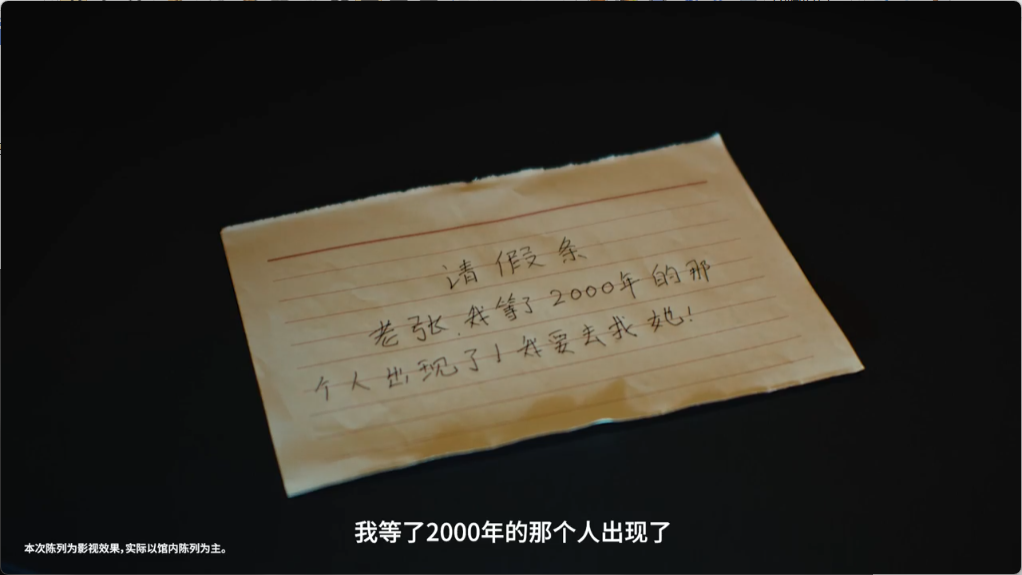 请假条
老张,我等了2000年的那
个人出现了,我要去找她!
我等了2000年的那个人出现了
本次陈列为影视效果,实际以馆内陈列为主。